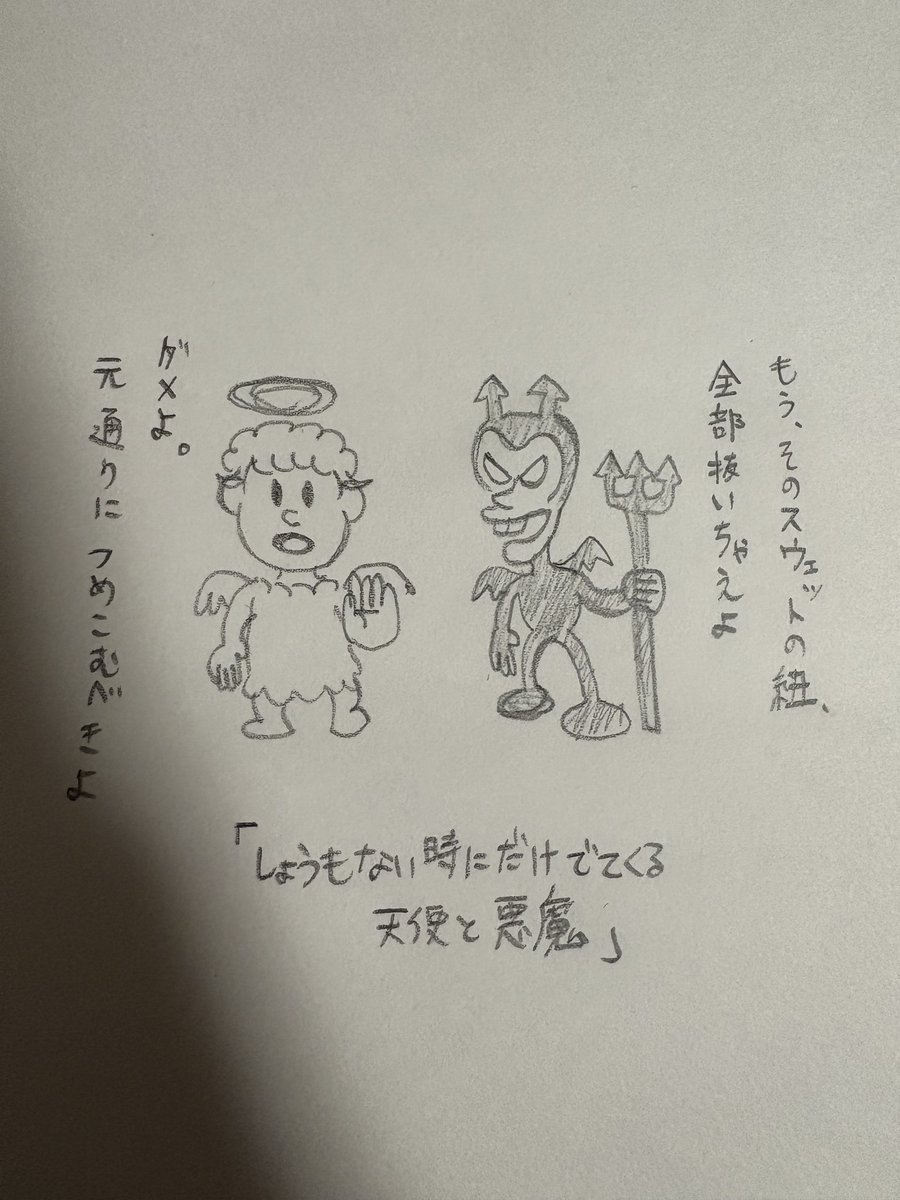 もう、そのスウェットの紐、
全部抜いちゃえよ
ダメよ。
元通りにつめこむべきよ
「しょうもない時にだけでてくる
天使と悪魔」